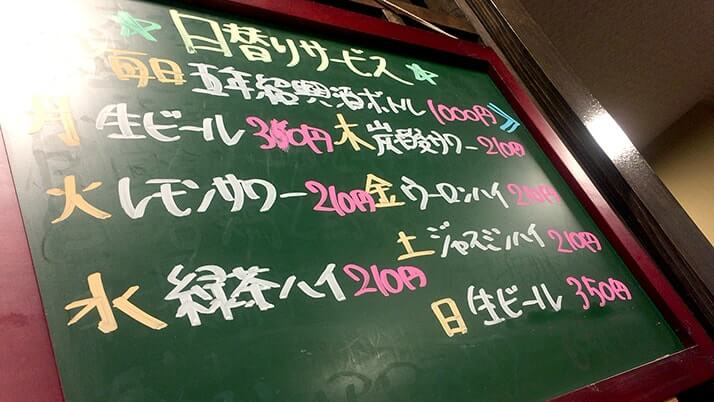 ☆日替りサービス☆
毎日 五年紹興酒ボトル 1000円
月 生ビール 350円
火 レモンサワー 210円
水 緑茶ハイ 210円
木 炭酸サワー 210円
金 ウーロンハイ 210円
土 ジャスミンハイ 210円
日 生ビール 350円